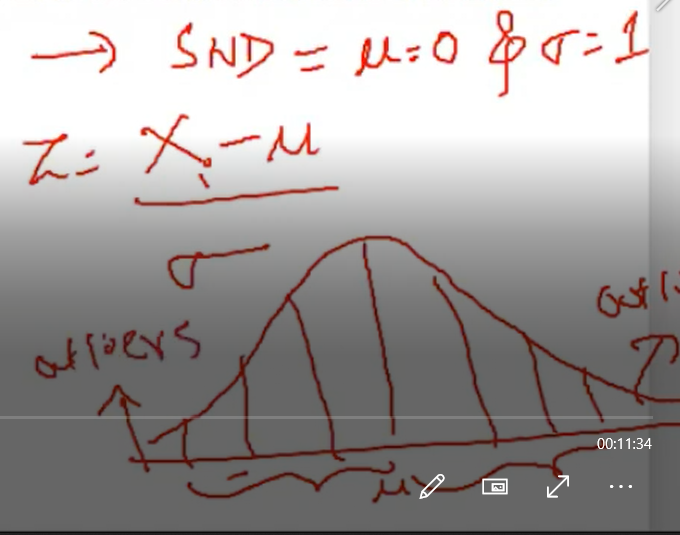 → SND = μ=0 & σ=1
Z = Xi - μ
σ
outliers
00:11:34
μ